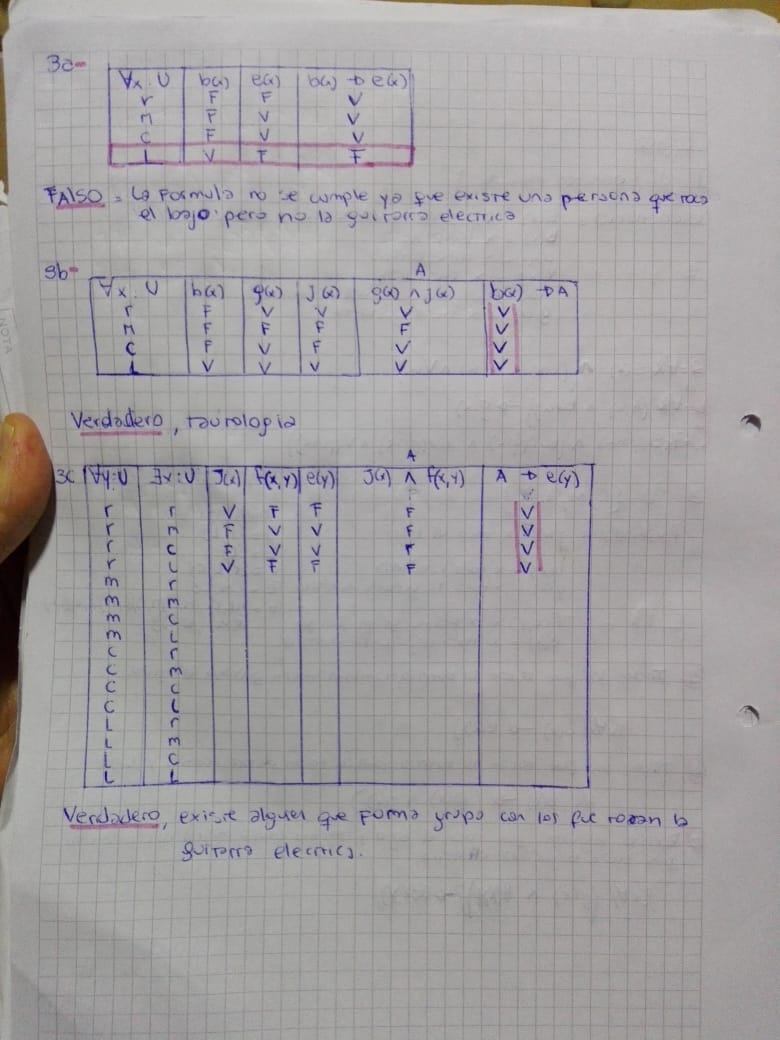 3a-
∀x:U b(x) e(x) b(x) → e(x)
r F F V
m F V V
c F V V
L V F F
FALSO = La formula no se cumple ya que existe una persona que toca
el bajo pero no la guitarra electrica
3b-
A
∀x:U b(x) g(x) j(x) g(x) ∧ j(x) b(x) → A
r F V V V V
m F F F F V
c F V F V V
L V V V V V
Verdadero, tautologia
A
3c ∀y:U ∃x:U J(x) F(x,y) e(y) J(x) ∧ F(x,y) A → e(y)
r r V F F F V
r m F V V F V
r c F V V F V
r L V F F F V
m r
m m
m c
m L
c r
c m
c c
c L
L r
L m
L c
L L
Verdadero, existe alguien que forma grupo con los que tocan la
guitarra electrica.
NOTA